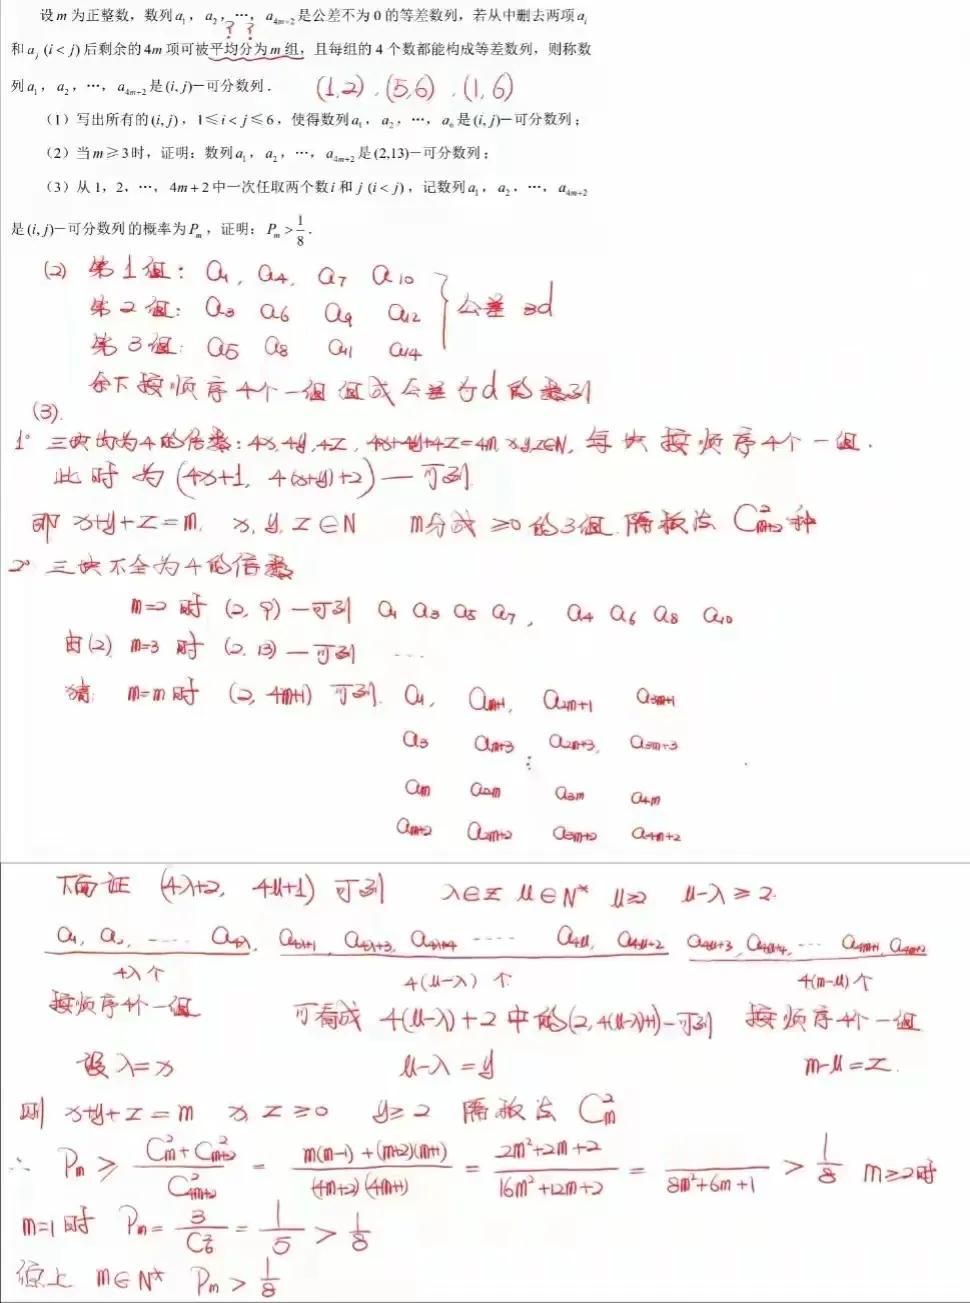 设m为正整数，数列a₁，a₂，…，a₄ₘ₊₂是公差不为0的等差数列，若从中删去两项aᵢ
? ?
和aⱼ(i<j)后剩余的4m项可被平均分为m组，且每组的4个数都能构成等差数列，则称数
列a₁，a₂，…，a₄ₘ₊₂是(i,j)—可分数列． (1,2)、(5,6)、(1,6)
（1）写出所有的(i,j)，1≤i<j≤6，使得数列a₁，a₂，…，a₆是(i,j)—可分数列；
（2）当m≥3时，证明：数列a₁，a₂，…，a₄ₘ₊₂是(2,13)—可分数列；
（3）从1，2，…，4m+2中一次任取两个数i和j(i<j)，记数列a₁，a₂，…，a₄ₘ₊₂
是(i,j)—可分数列的概率为Pₘ，证明：Pₘ>1/8．
(2) 第1组: a₁, a₄, a₇ a₁₀
第2组: a₃ a₆ a₉ a₁₂ } 公差3d
第3组: a₅ a₈ a₁₁ a₁₄
余下按顺序4个一组组成公差为d的数列
(3).
1° 三块均为4的倍数: 4x,4y,4z, 4x+4y+4z=4m x,y,z∈N, 每块按顺序4个一组.
此时为(4x+1, 4(x+y)+2)—可列.
即x+y+z=m, x,y,z∈N m分成≥0的3组.隔板法C²ₘ₊₂种
2° 三块不全为4的倍数
m=2时(2,9)—可列 a₁ a₃ a₅ a₇, a₄ a₆ a₈ a₁₀
由(2) m=3时(2,13)—可列 ...
猜: m=m时(2,4m+1)可列. a₁, aₘ₊₁, a₂ₘ₊₁ a₃ₘ₊₁
a₃ aₘ₊₃ a₂ₘ₊₃, a₃ₘ₊₃
⋮
aₘ a₂ₘ a₃ₘ a₄ₘ
aₘ₊₂ a₂ₘ₊₂ a₃ₘ₊₂ a₄ₘ₊₂
下面证(4λ+2, 4μ+1)可列 λ∈Z μ∈N* μ≥2 μ-λ≥2.
a₁, a₂, ···· a₄λ, a₄λ₊₁, a₄λ₊₃, a₄λ₊₄ ···· a₄μ, a₄μ₊₂ a₄μ₊₃, a₄μ₊₄, ··· a₄ₘ₊₁, a₄ₘ₊₂
4λ个 4(μ-λ)个 4(m-μ)个
按顺序4个一组 可看成4(μ-λ)+2中的(2,4(μ-λ)+1)-可列 按顺序4个一组
设λ=x μ-λ=y m-μ=z.
则x+y+z=m x,z≥0 y≥2 隔板法C²ₘ
∴ Pₘ ≥ (C²ₘ+C²ₘ₊₂)/C²₄ₘ₊₂ = (m(m-1)+(m+2)(m+1))/((4m+2)(4m+1)) = (2m²+2m+2)/(16m²+12m+2) = /(8m²+6m+1) > 1/8 m≥2时
m=1时 Pₘ=3/C²₆=1/5>1/8
综上 m∈N* Pₘ>1/8